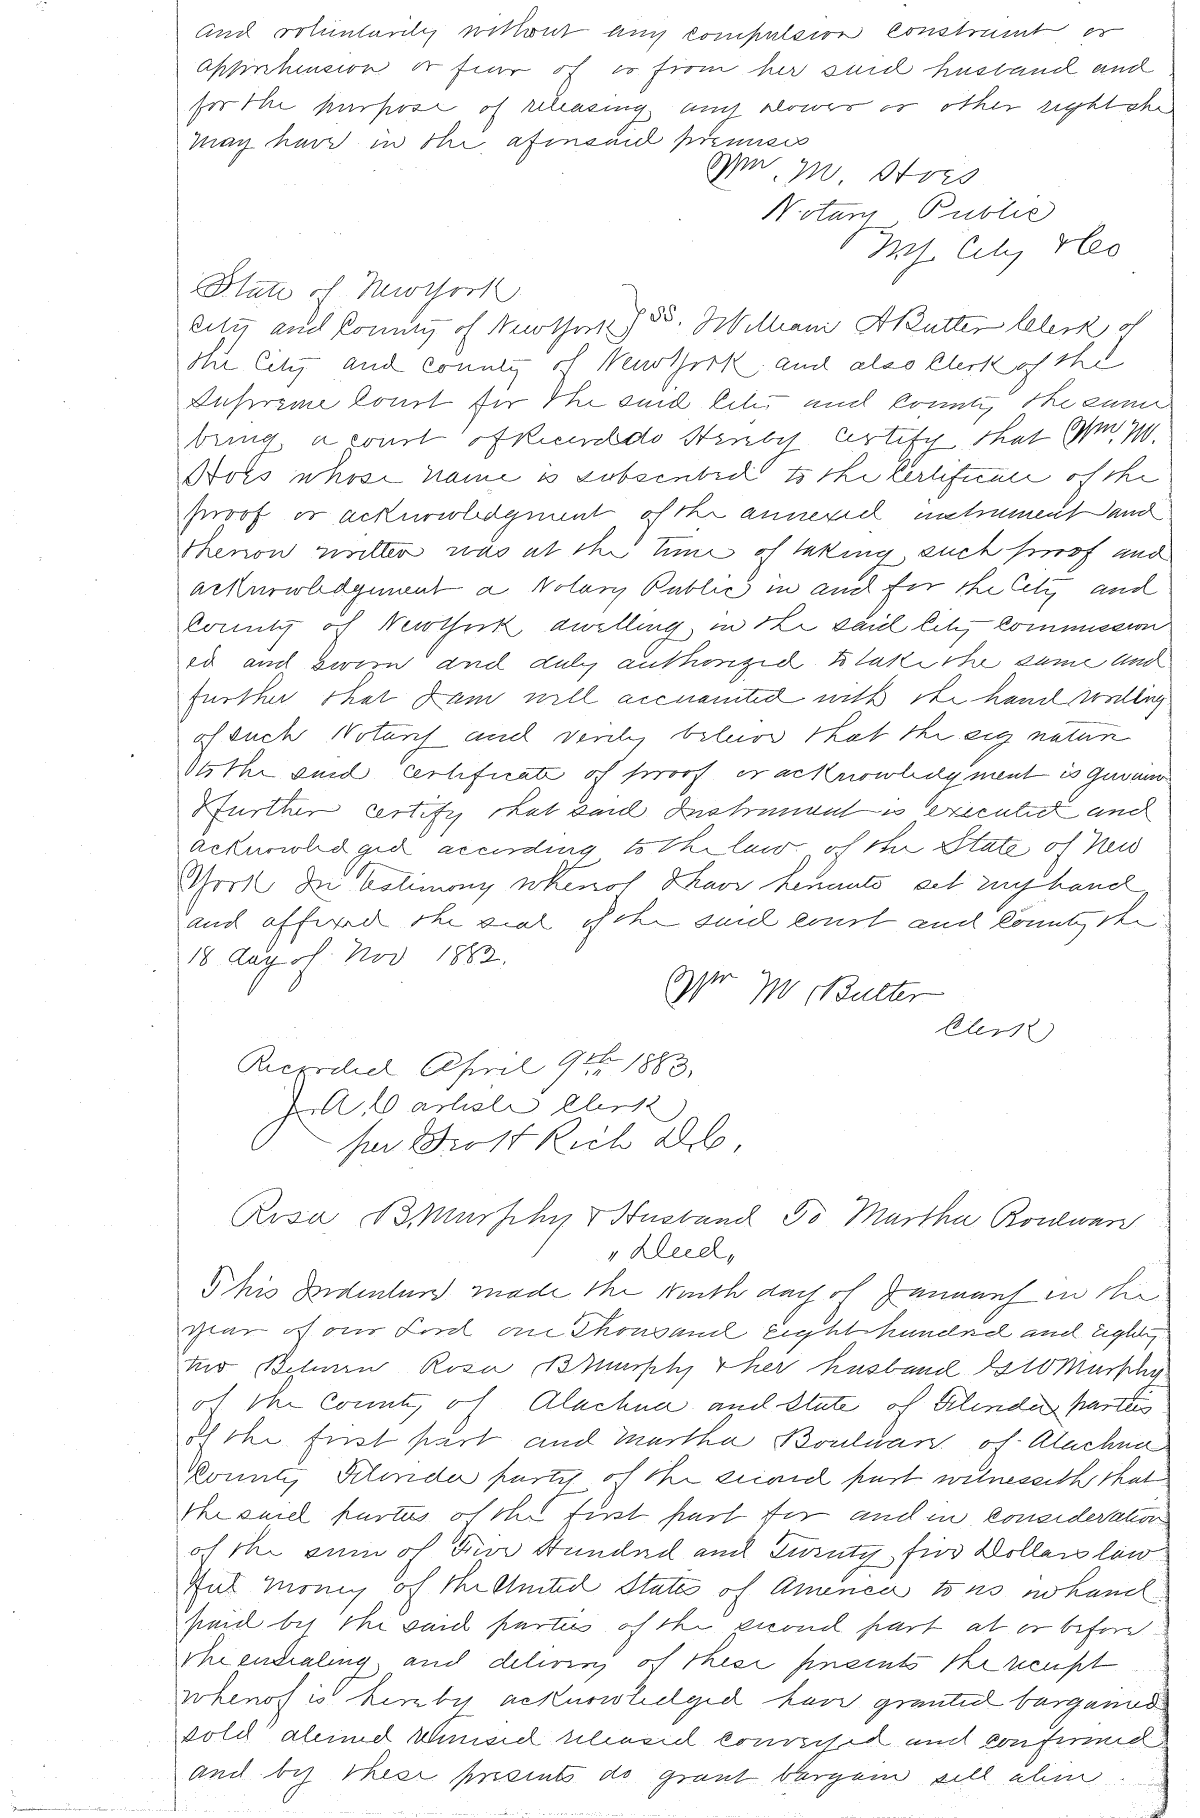 and voluntarily without any compulsion constraint or
apprehension or fear of or from her said husband and
for the purpose of releasing any dower or other right she
may have in the aforesaid premises
Wm. M. Hoes
Notary Public
N.Y. City & Co
State of New York
City and County of New York } SS. I William A Butler Clerk of
the City and County of New York and also Clerk of the
Supreme Court for the said City and County the same
being a court of Record do Hereby Certify that Wm. M.
Hoes whose name is subscribed to the Certificate of the
proof or acknowledgment of the annexed instrument and
thereon written was at the time of taking such proof and
acknowledgement a Notary Public in and for the City and
County of New York dwelling in the said City commission
ed and sworn and duly authorized to take the same and
further that I am well accuainted with the hand writing
of such Notary and verily believe that the sig nature
to the said certificate of proof or acknowledgment is genuine
I further certify that said Instrument is executed and
acknowledged according to the law of the State of New
York In Testimony whereof I have hereunto set my hand
and affixed the seal of the said court and County the
18 day of Nov 1882.
Wm M Butler
Clerk
Recorded April 9th 1883,
J. A. Carlisle Clerk
per Scott Rich D.C.
Rosa B. Murphy & Husband To Martha Boulware
" Deed "
This Indenture made the Ninth day of January in the
year of our Lord one Thousand Eight hundred and Eighty
two Between Rosa B Murphy & her husband Murphy
of the County of Alachua and State of Florida parties
of the first part and Martha Boulware of Alachua
County Florida party of the second part witnesseth that
the said parties of the first part for and in consideration
of the sum of Five Hundred and Twenty five Dollars law
ful money of the United States of America to us in hand
paid by the said parties of the second part at or before
the ensealing and delivery of these presents the receipt
whereof is hereby acknowledged have granted bargained
sold aliened remised released conveyed and confirmed
and by these presents do grant bargain sell alien